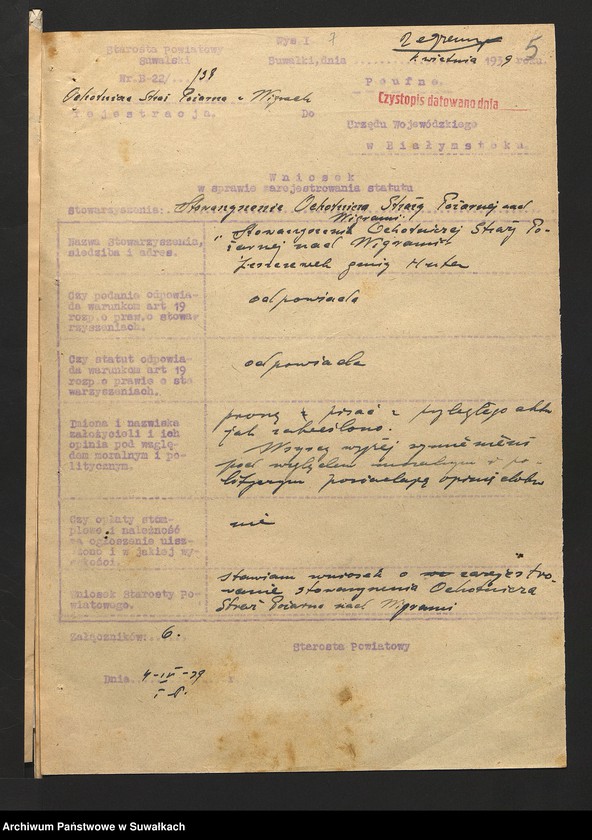 Wys I.
5
Starosta Powiatowy
Suwalski
Suwałki, dnia ........ kwietnia 1939 roku.
Nr. B-22/.../39
Poufne.
Czystopis datowano dnia
Ochotnicza Straż Pożarna
rejestracja.
Do
Urzędu Wojewódzkiego
w Białymstoku
Wniosek
w sprawie zarejestrowania statutu
Stowarzyszenia: Stowarzyszenie Ochotnicza Straży Pożarnej nad
Wigrami.
Nazwa Stowarzyszenia,
siedziba i adres.
"Stowarzyszenie Ochotniczej Straży Po-
żarnej nad Wigrami"
Czy podanie odpowia-
da warunkom art 19
rozp. o praw. o stowa-
rzyszeniach.
odpowiada
Czy statut odpowia-
da warunkom art 19
rozp. o prawie o sto
warzyszeniach.
odpowiada
Imiona i nazwiska
założycieli i ich
opinia pod wzglę-
dem moralnym i po-
litycznym.
proszę pisać z przyległego aktu
jak zakreślono.
Wszyscy wyżej wymienieni
pod względem moralnym i po-
litycznym posiadają opinię dobrą
Czy opłaty stem-
plowe i należność
za ogłoszenie uisz-
czono i w jakiej wy-
sokości.
nie
Wniosek Starosty Po-
wiatowego.
stawiam wniosek o zarejestro-
wanie stowarzyszenia Ochotnicza
Straż Pożarna nad Wigrami
Załączników: 6.
Starosta Powiatowy
Dnia 4-IV-39 r.
Archiwum Państwowe w Suwałkach